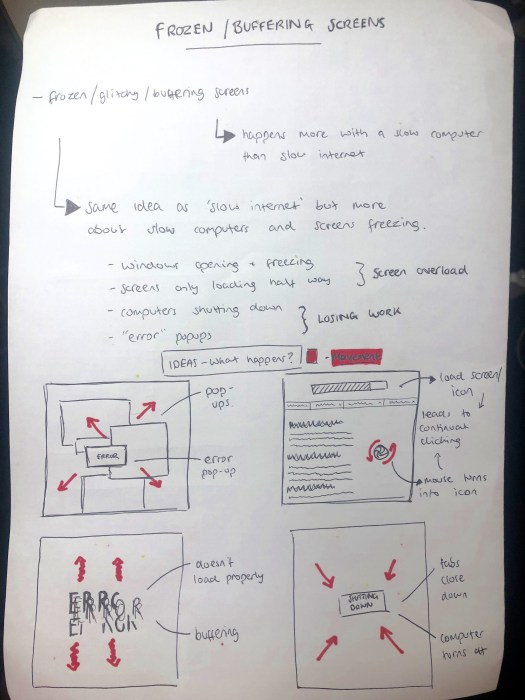 FROZEN / BUFFERING SCREENS
- frozen/glitchy/buffering screens
happens more with a slow computer
than slow internet
same idea as 'slow internet' but more
about slow computers and screens freezing.
- windows opening + freezing
- screens only loading half way
screen overload
- computers shutting down
- "error" popups
LOSING WORK
IDEAS - what happens?
- MOVEMENT
pop-
ups.
ERROR
error
pop-up
load screen/
icon
leads to
continual
clicking
mouse turns
into icon
ERRO
ERROR
doesn't
load properly
buffering
SHUTTING
DOWN
tabs
close
down
computer
turns off